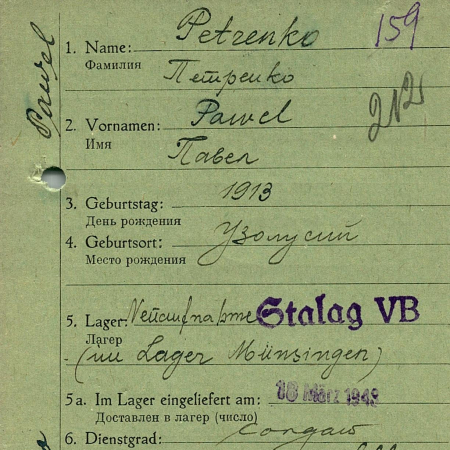 159
1. Name: Petrenko
Фамилия
Петренко
Pawel
212
2. Vornamen: Pawel
Имя
Павел
3. Geburtstag: 1913
День рождения
4. Geburtsort: Узолусий
Место рождения
5. Lager: Neuaufnahme Stalag VB
Лагер
(im Lager Münsingen)
5a. Im Lager eingeliefert am: 18 März 1943
Доставлен в лагер (число)
6. Dienstgrad: